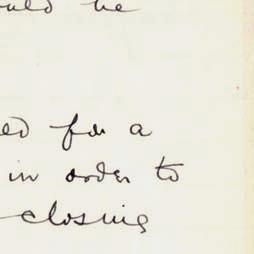 ould be
ed for a
in order to
closing